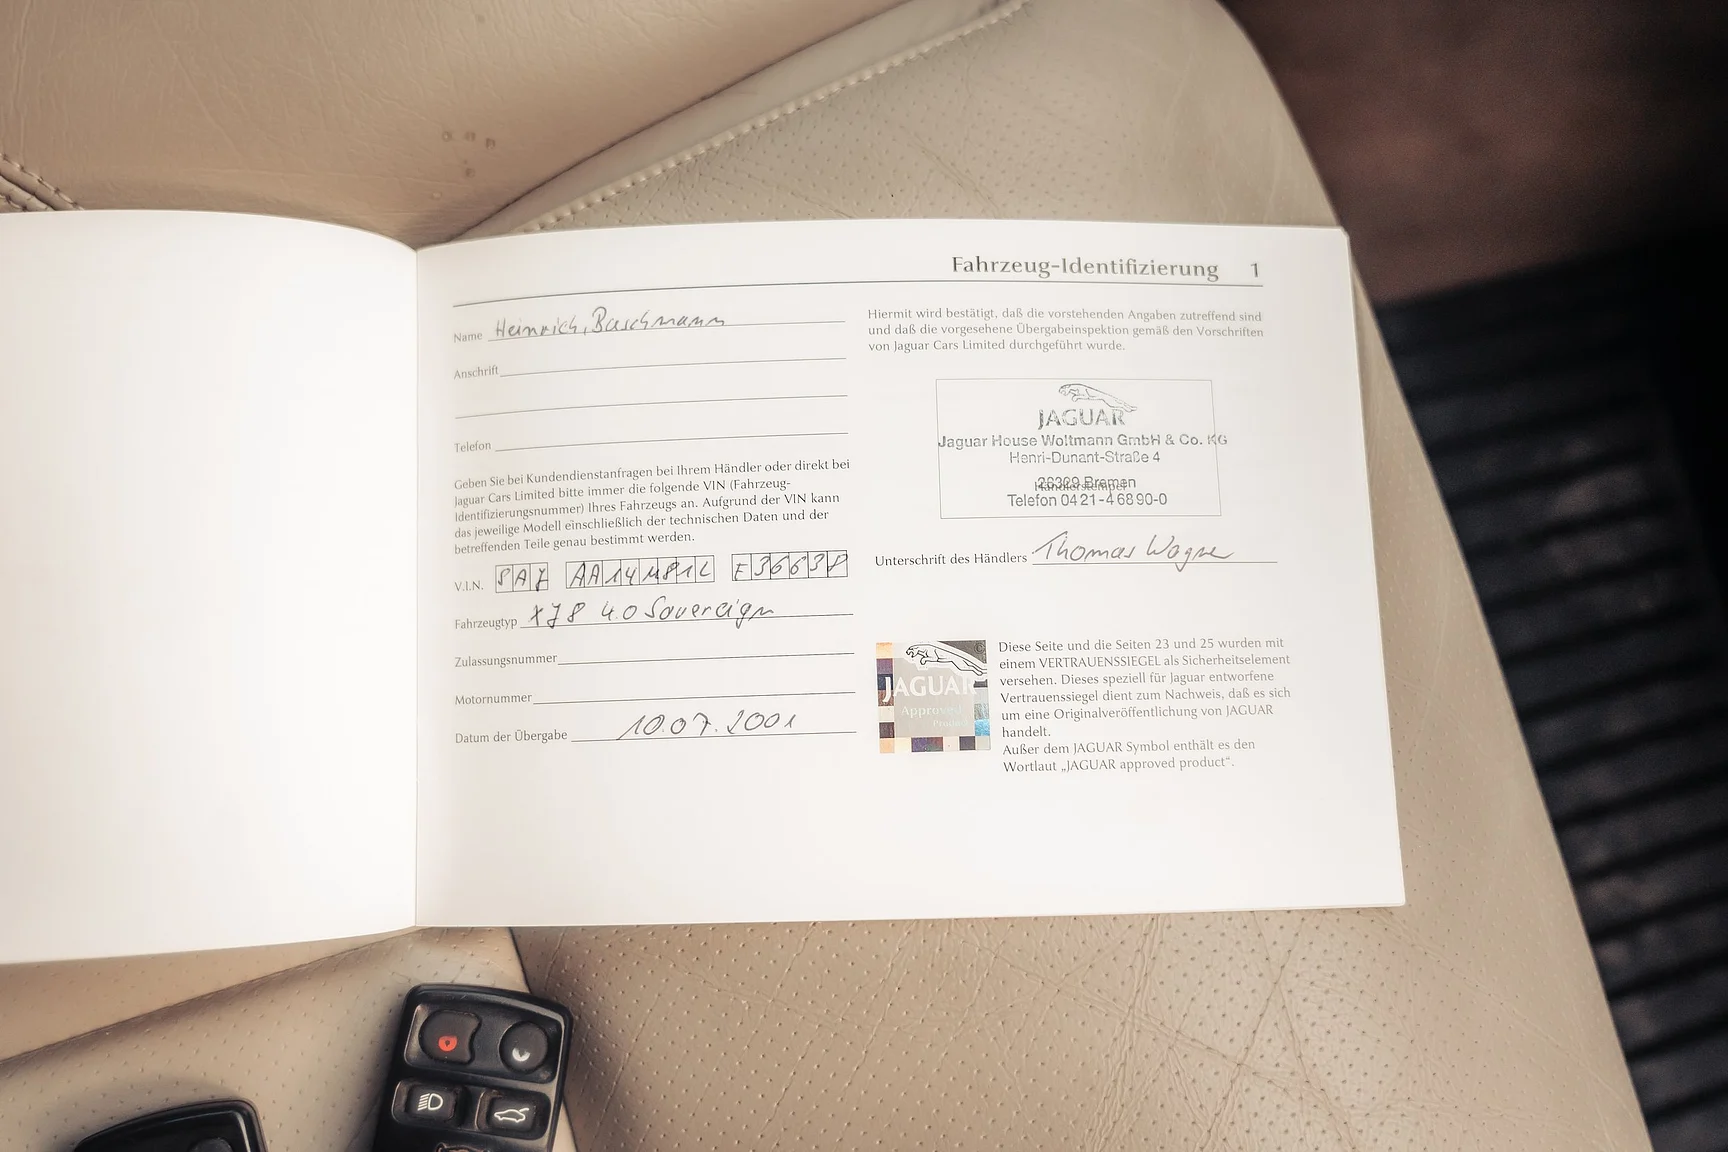 Fahrzeug-Identifizierung 1
Name Heinrich, Buschmann
Anschrift
Telefon
Geben Sie bei Kundendienstanfragen bei Ihrem Händler oder direkt bei
Jaguar Cars Limited bitte immer die folgende VIN (Fahrzeug-
Identifizierungsnummer) Ihres Fahrzeugs an. Aufgrund der VIN kann
das jeweilige Modell einschließlich der technischen Daten und der
betreffenden Teile genau bestimmt werden.
V.I.N. SAJ
Fahrzeugtyp XJ8 4.0 Sovereign
Zulassungsnummer
Motornummer
Datum der Übergabe 10.07.2001
Hiermit wird bestätigt, daß die vorstehenden Angaben zutreffend sind
und daß die vorgesehene Übergabeinspektion gemäß den Vorschriften
von Jaguar Cars Limited durchgeführt wurde.
JAGUAR
Jaguar House Woltmann GmbH & Co. KG
Henri-Dunant-Straße 4
Händlerstempel
Bremen
Telefon 04 21 - 4 68 90-0
Unterschrift des Händlers Thomas Wagner
JAGUAR
Approved
Diese Seite und die Seiten 23 und 25 wurden mit
einem VERTRAUENSSIEGEL als Sicherheitselement
versehen. Dieses speziell für Jaguar entworfene
Vertrauenssiegel dient zum Nachweis, daß es sich
um eine Originalveröffentlichung von JAGUAR
handelt.
Außer dem JAGUAR Symbol enthält es den
Wortlaut „JAGUAR approved product“.